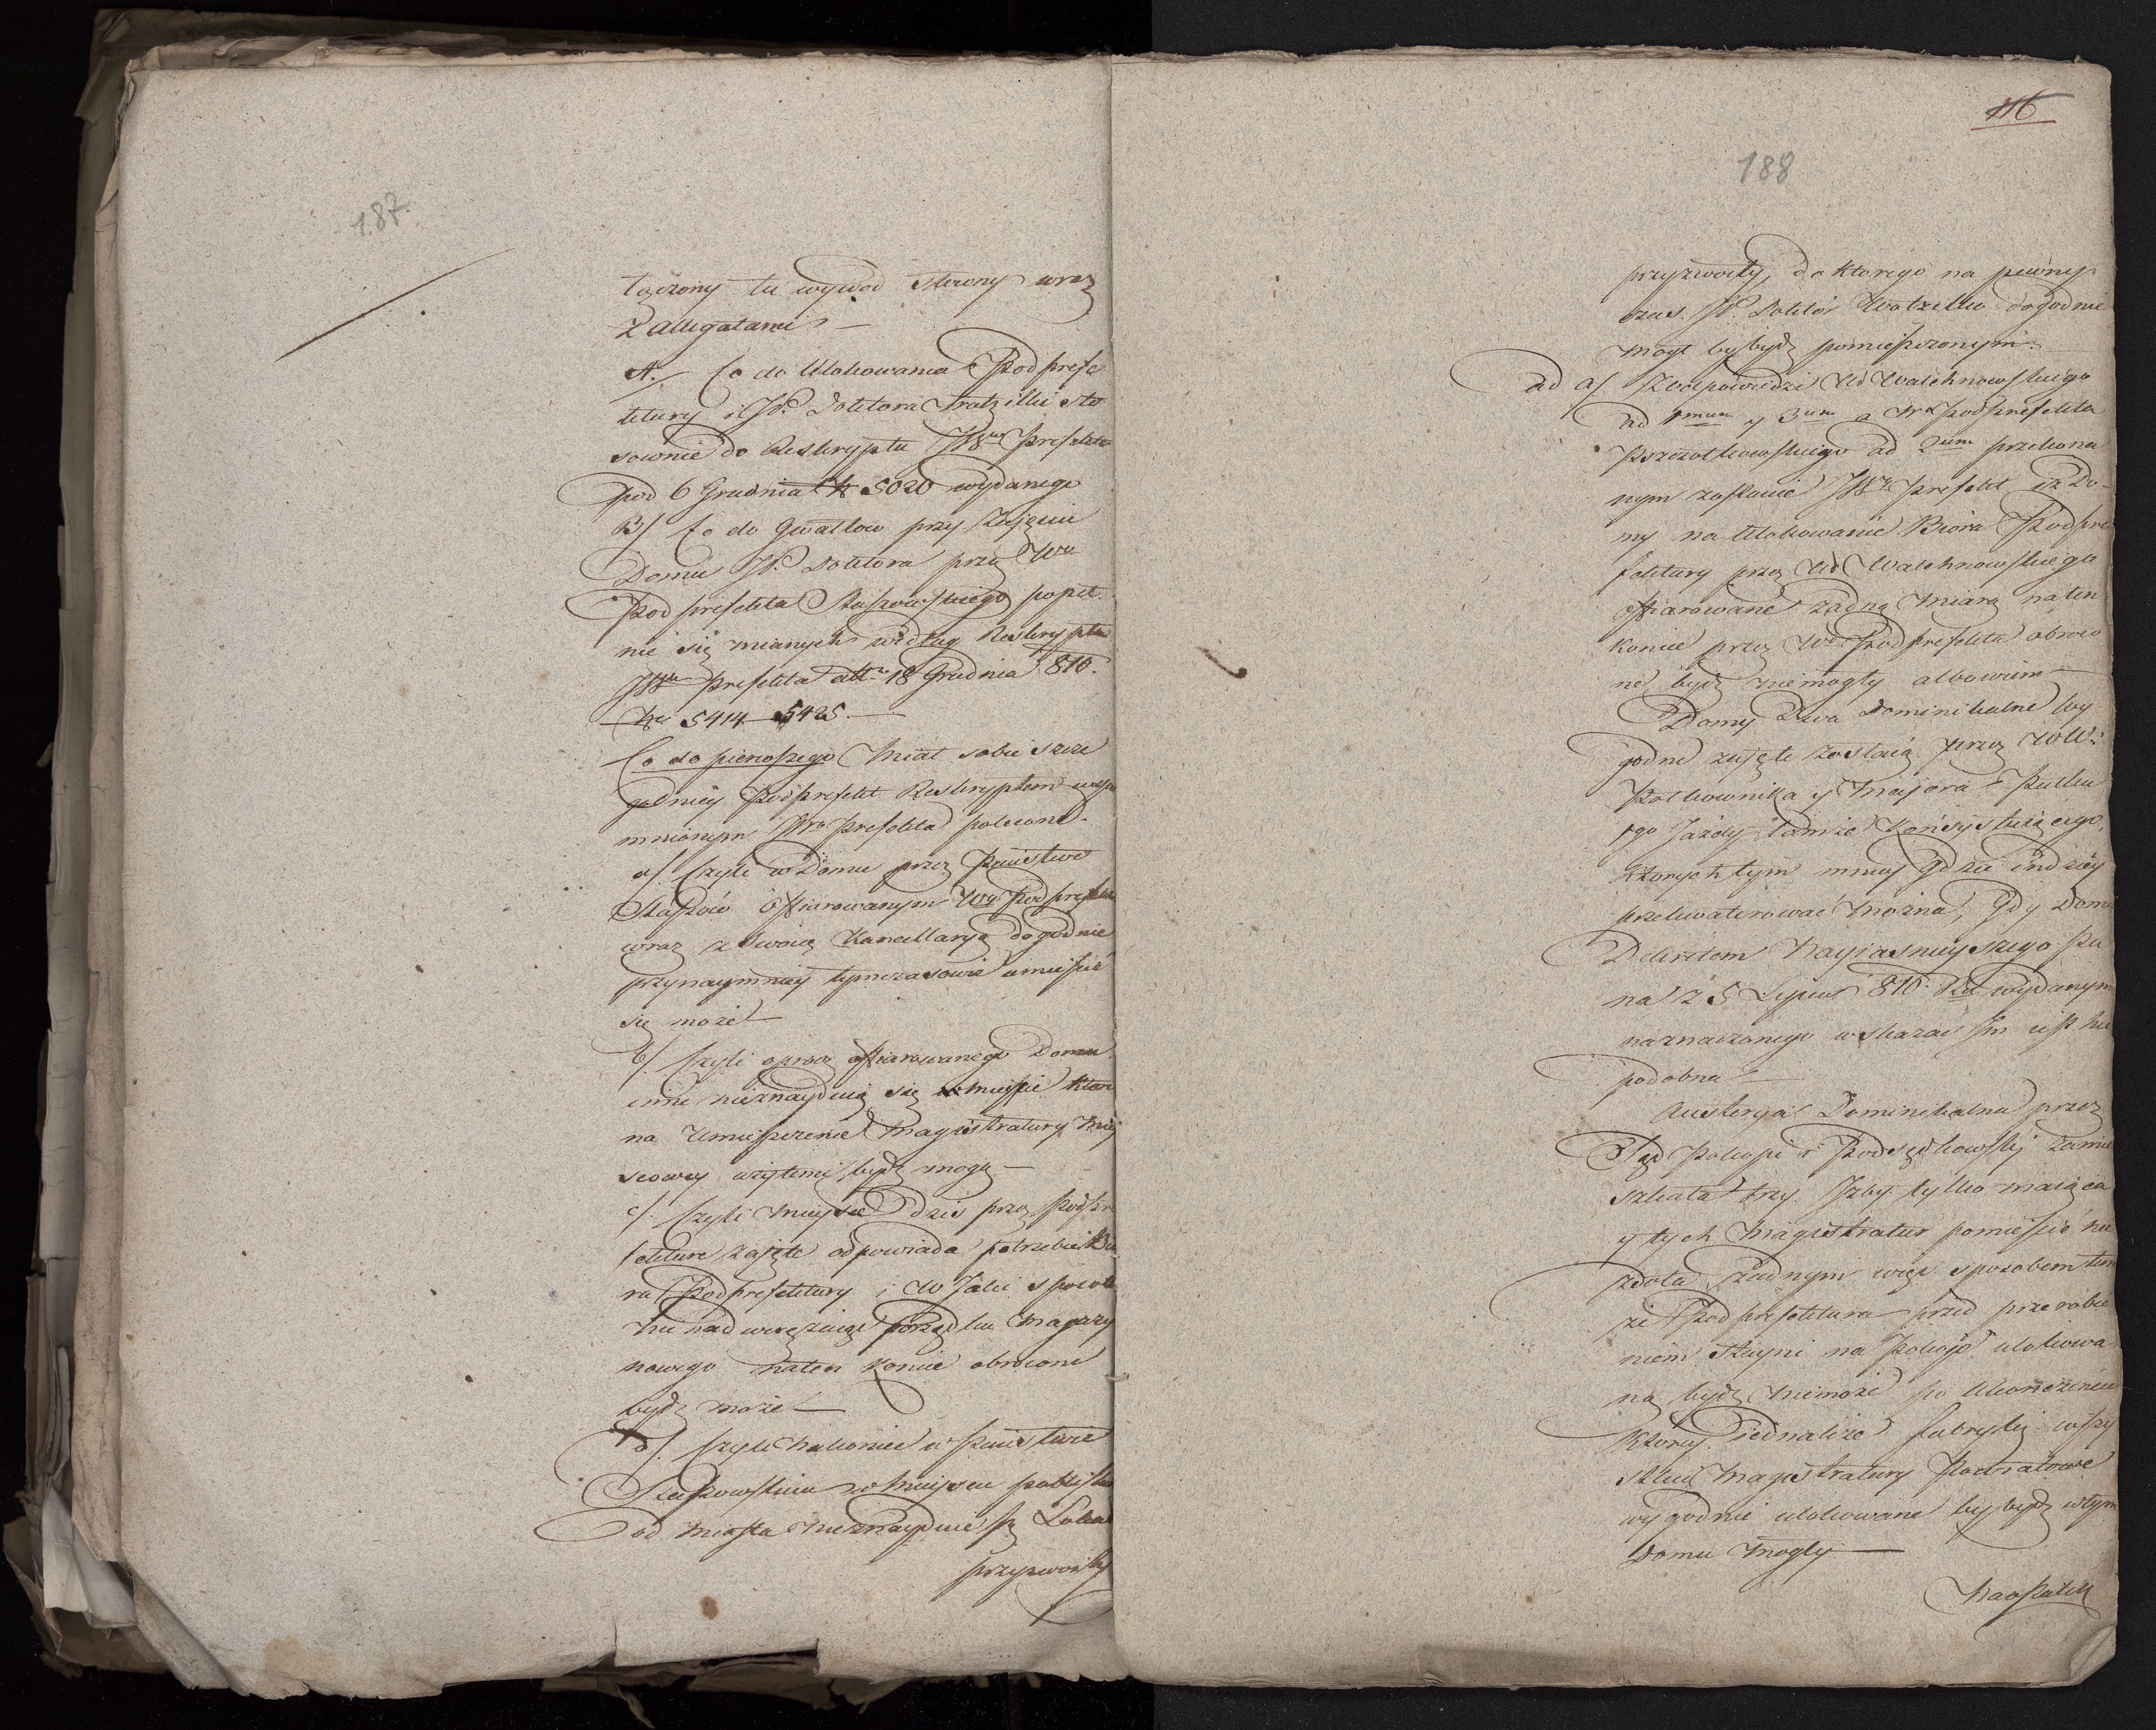 187.
łączony tu wywód słowny wraz
z allegatami. —
A./ Co do Ulokowania Podprefe
ktury i JP. Doktora stó
sownie do Reskryptu JW Prefekta
pod 6 Grudnia Nr 5020 wydanego
B/ Co do Gwałtow przy Zajęciu
Domu JP. Doktora przez Wo
Podprefekta Staszowskiego popeł
nić się mianych według Reskryptu
JWgo Prefekta dtto 18 Grudnia 810.
Nr 5414 5425. —
Co do pierwszego Miał sobie szcze
gulniey Podprefekt Reskryptem wspo
mnionym JW Prefekta polecone.
a/ Czyli w Domu przez Państwo
Staszów offiarowanym Wy Podprefekt
wraz z swoią Kancellaryą dogodnie
przynaymniey tymczasowie umieścić
się może —
b/ Czyli oprocz offiarowanego Domu
inne nieznayduią się w mieście ktore
na Umieszczenie Magistratury Miey
scowey użytemi bydź mogą —
c/. Czyli mieysce dziś przez Podpre
fekturę zajęte odpowiada potrzebie Biu
ra Podprefektury i w Jaki sposob
nie nadwerężaiąc porządku magazy
nowego naten koniec obrócone
bydź może —
d/. Czyli nakoniec w Państwie
Staszowskim w mieyscu poblisk
od miasta nieznayduie się Lokal
przyzwoity
116
188
przyzwoity, do ktorego na pewny
czas JP. Doktor dogodnie
mogł by bydź pomieszczonym.
ad a/ Z odpowiedzi Ur Walchnowskiego
ad 1mum y 3um a Wo Podprefekta
Pszczołkowskiego ad 2um przekona
nym zostanie JW Prefekt iż Do-
my na Ulokowanie Biora Podpre
fektury przez Ur Walchnowskiego
offiarowane żadną miarą naten
koniec przez Wo Podprefekta obroco
ne bydź niemogły albowiem —
Domy Dwa Dominikalne wy
godne zajęte zostaią przez WW.
Połkownika y Majora Pułku
1go Jazdy tamże konsystuiącego,
ktorych tym mniey gdzie indziey
przekwaterować można, gdy Domu
Dekretem Nayjasnieyszego Pa
na z 5 Lipca 810. Ru wydanym
naznaczonego wskazać Im iest nie
podobna —
Austerya Dominikalna przez
Sąd Pokoju i Podsędkowski zamie
szkała trzy Izby tylko maiąca
y tych Magistratur pomieścić nie
zdoła, żadnym więc sposobem tam
że Podprefektura przed przerobie
niem Stayni na Pokoje ulokowa
ną bydź niemoże po Ukończeniu
ktorey iednakże fabryki wszy
stkie Magistratury Powiatowe
wygodnie ulokowane by bydź w tym
Domu mogły —